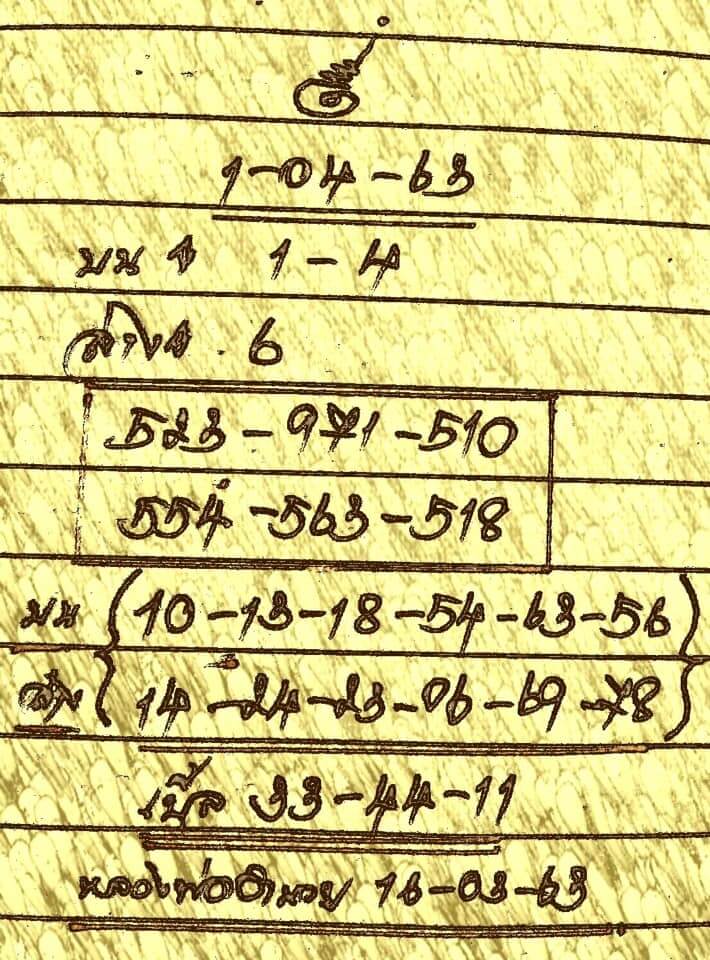 1-04-63
บน 1 1-4
ล่าง 6
523-971-510
554-563-518
บน {10-13-18-54-63-56}
ล่าง {14-24-23-06-69-78}
เบิ้ล 33-44-11
หลวงพ่ออำนวย 16-03-63